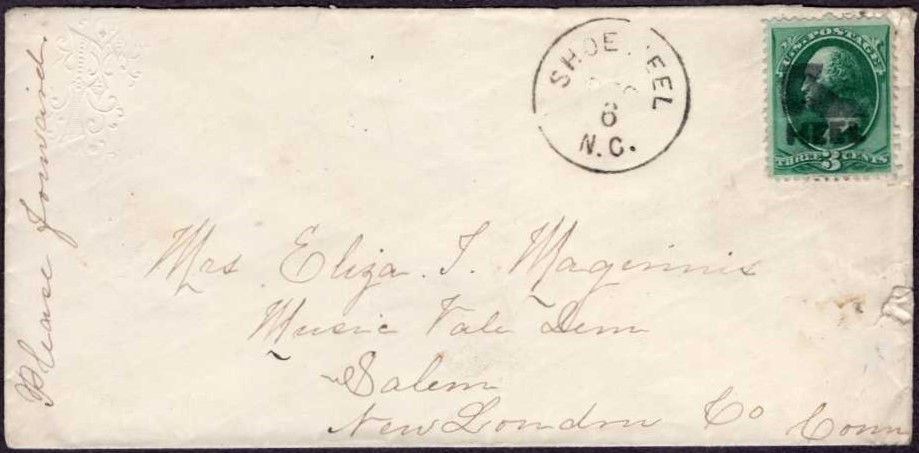 Please forward.
SHOE HEEL
6
N.C.
U.S. POSTAGE
HEEL
THREE 3 CENTS
Mrs Eliza. T. Maginnis
Music Vale Sem
Salem
New London Co Conn